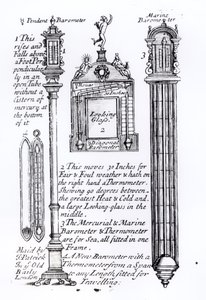 ye Pendent Barometer
Marine
Barometer
1 This
rises and
Falls above
a Foot Per-
pendicular-
ly in an
open Tube
without a
Cistern of
mercury
at the
bottom of
it
3
Looking
Glass
2
Diagonal
Barometer
2 This moves 30 Inches for
Fair & Foul weather & hath on
the right hand a Thermometer,
Shewing 90 degrees between
the greatest Heat & Cold and
a large Looking-glass in the
middle.
3 The Mercurial & Marine
Barometer & Thermometer
are for Sea, all fitted in one
Frame.
4 A New Barometer with a
Thermometer from a Span
to any Length, fitted for
Travelling.
Made by
J. Patrick
in ye Old
Baily
London